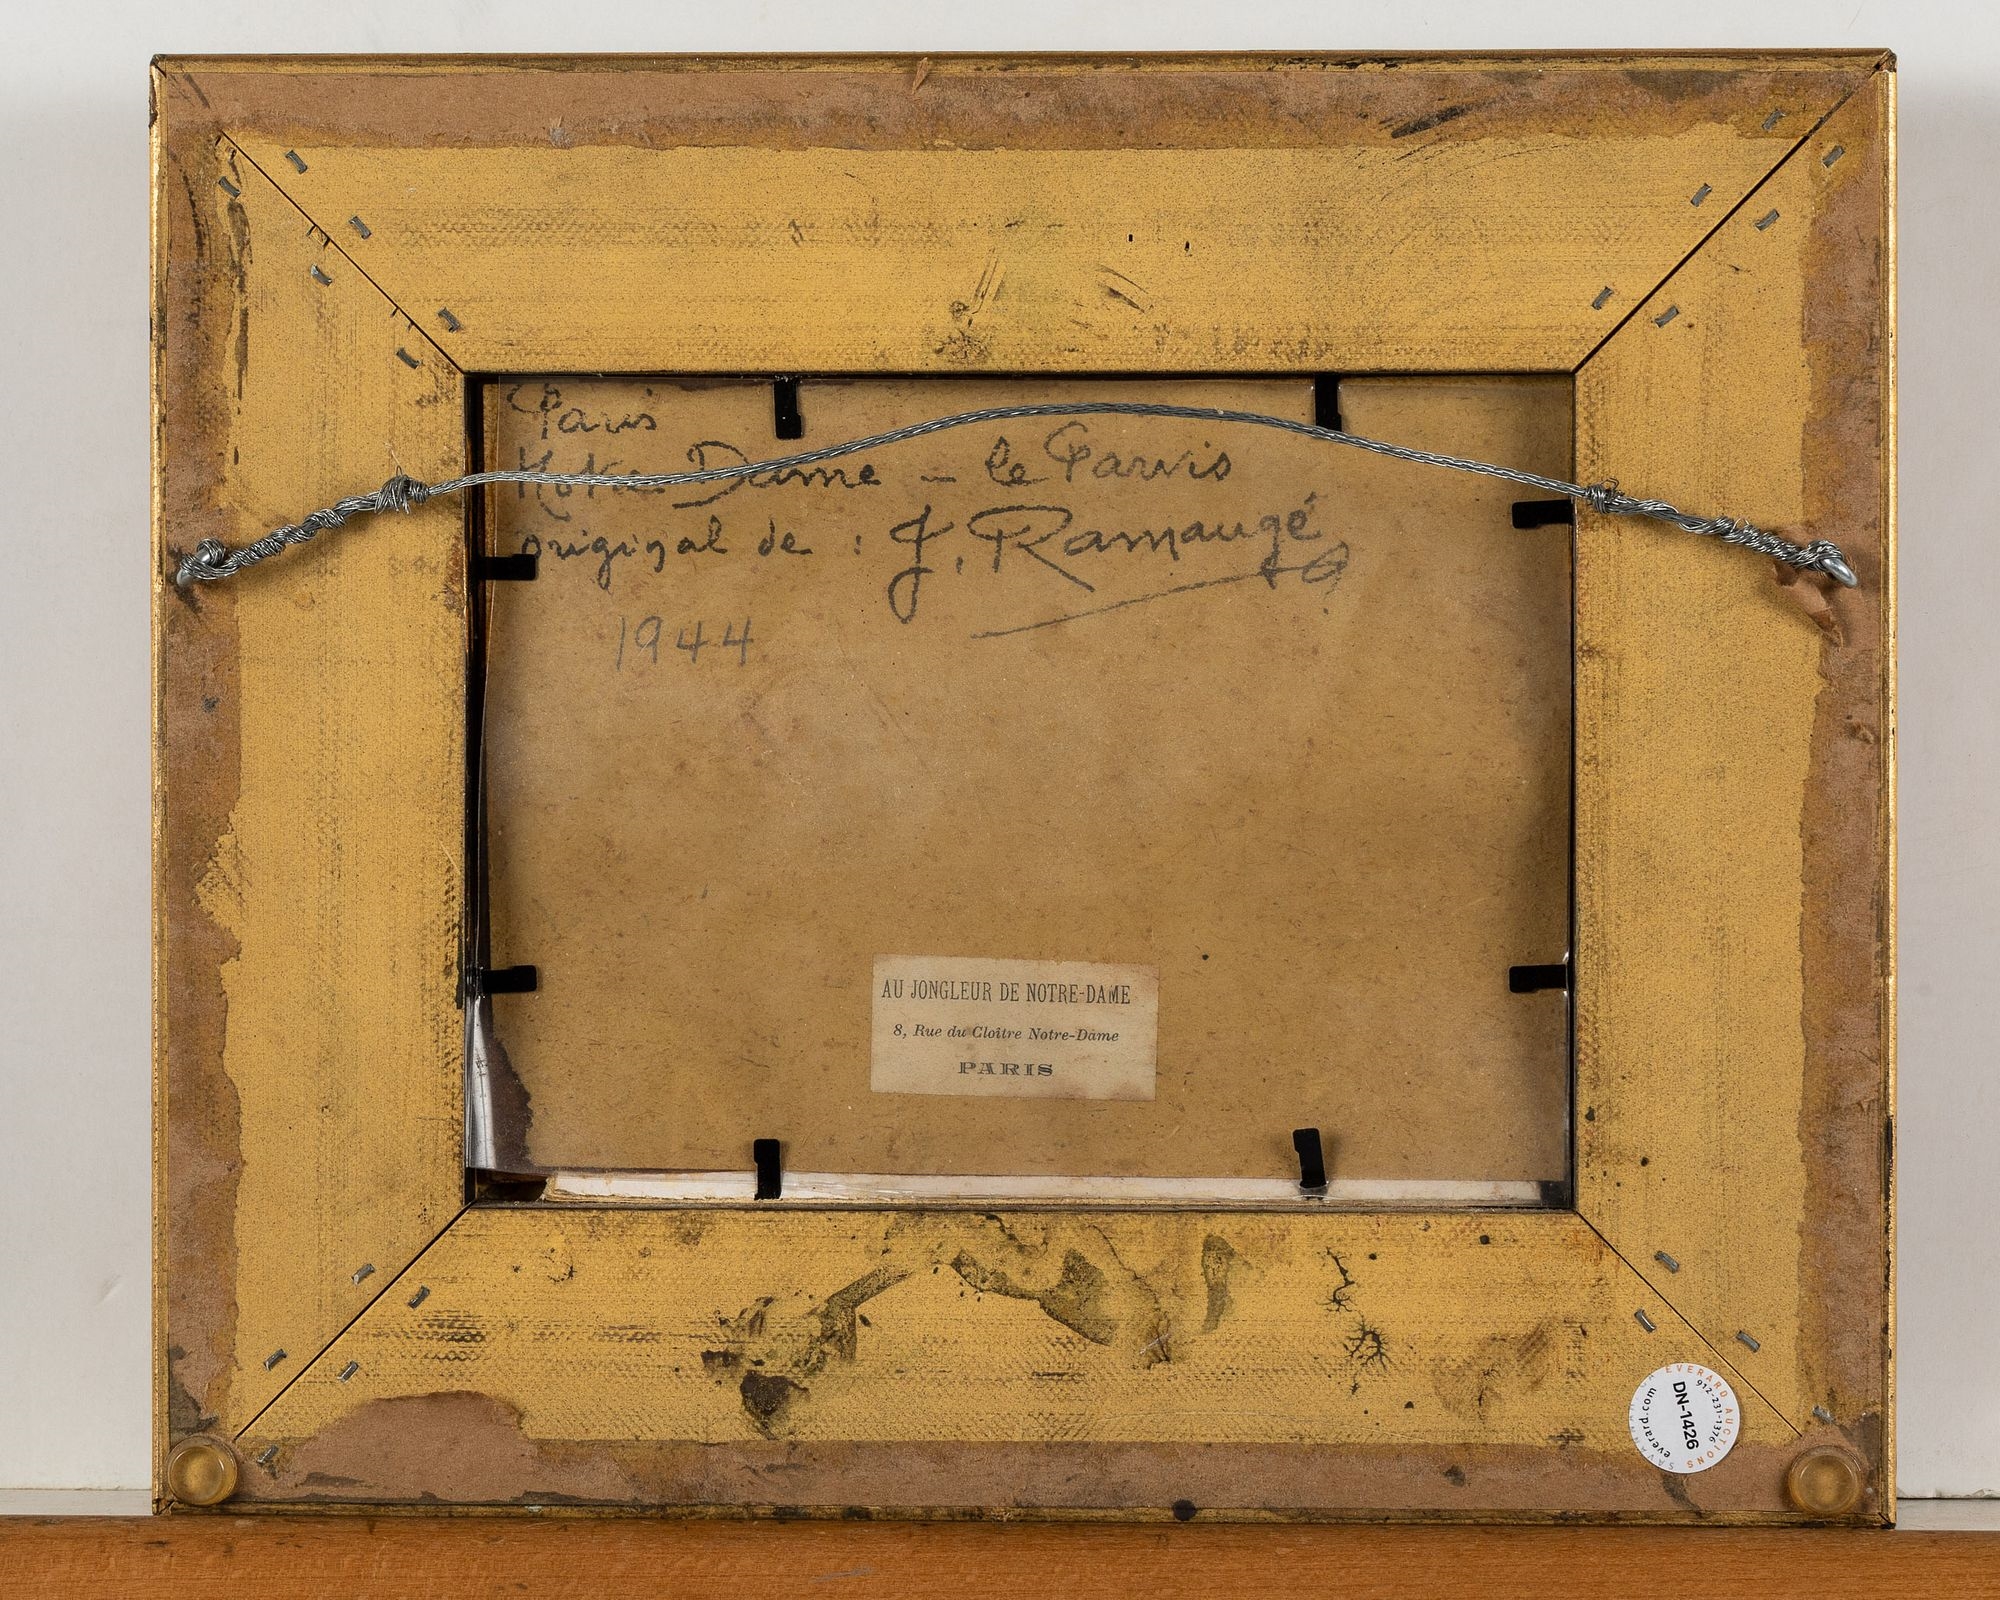 Paris
Notre Dame - le Parvis
original de : J. Ramaugé
1944
AU JONGLEUR DE NOTRE-DAME
8, Rue du Cloître Notre-Dame
PARIS
EVERARD AUCTIONS
912-231-1376
DN-1426
everard.com
SAVANNAH GA